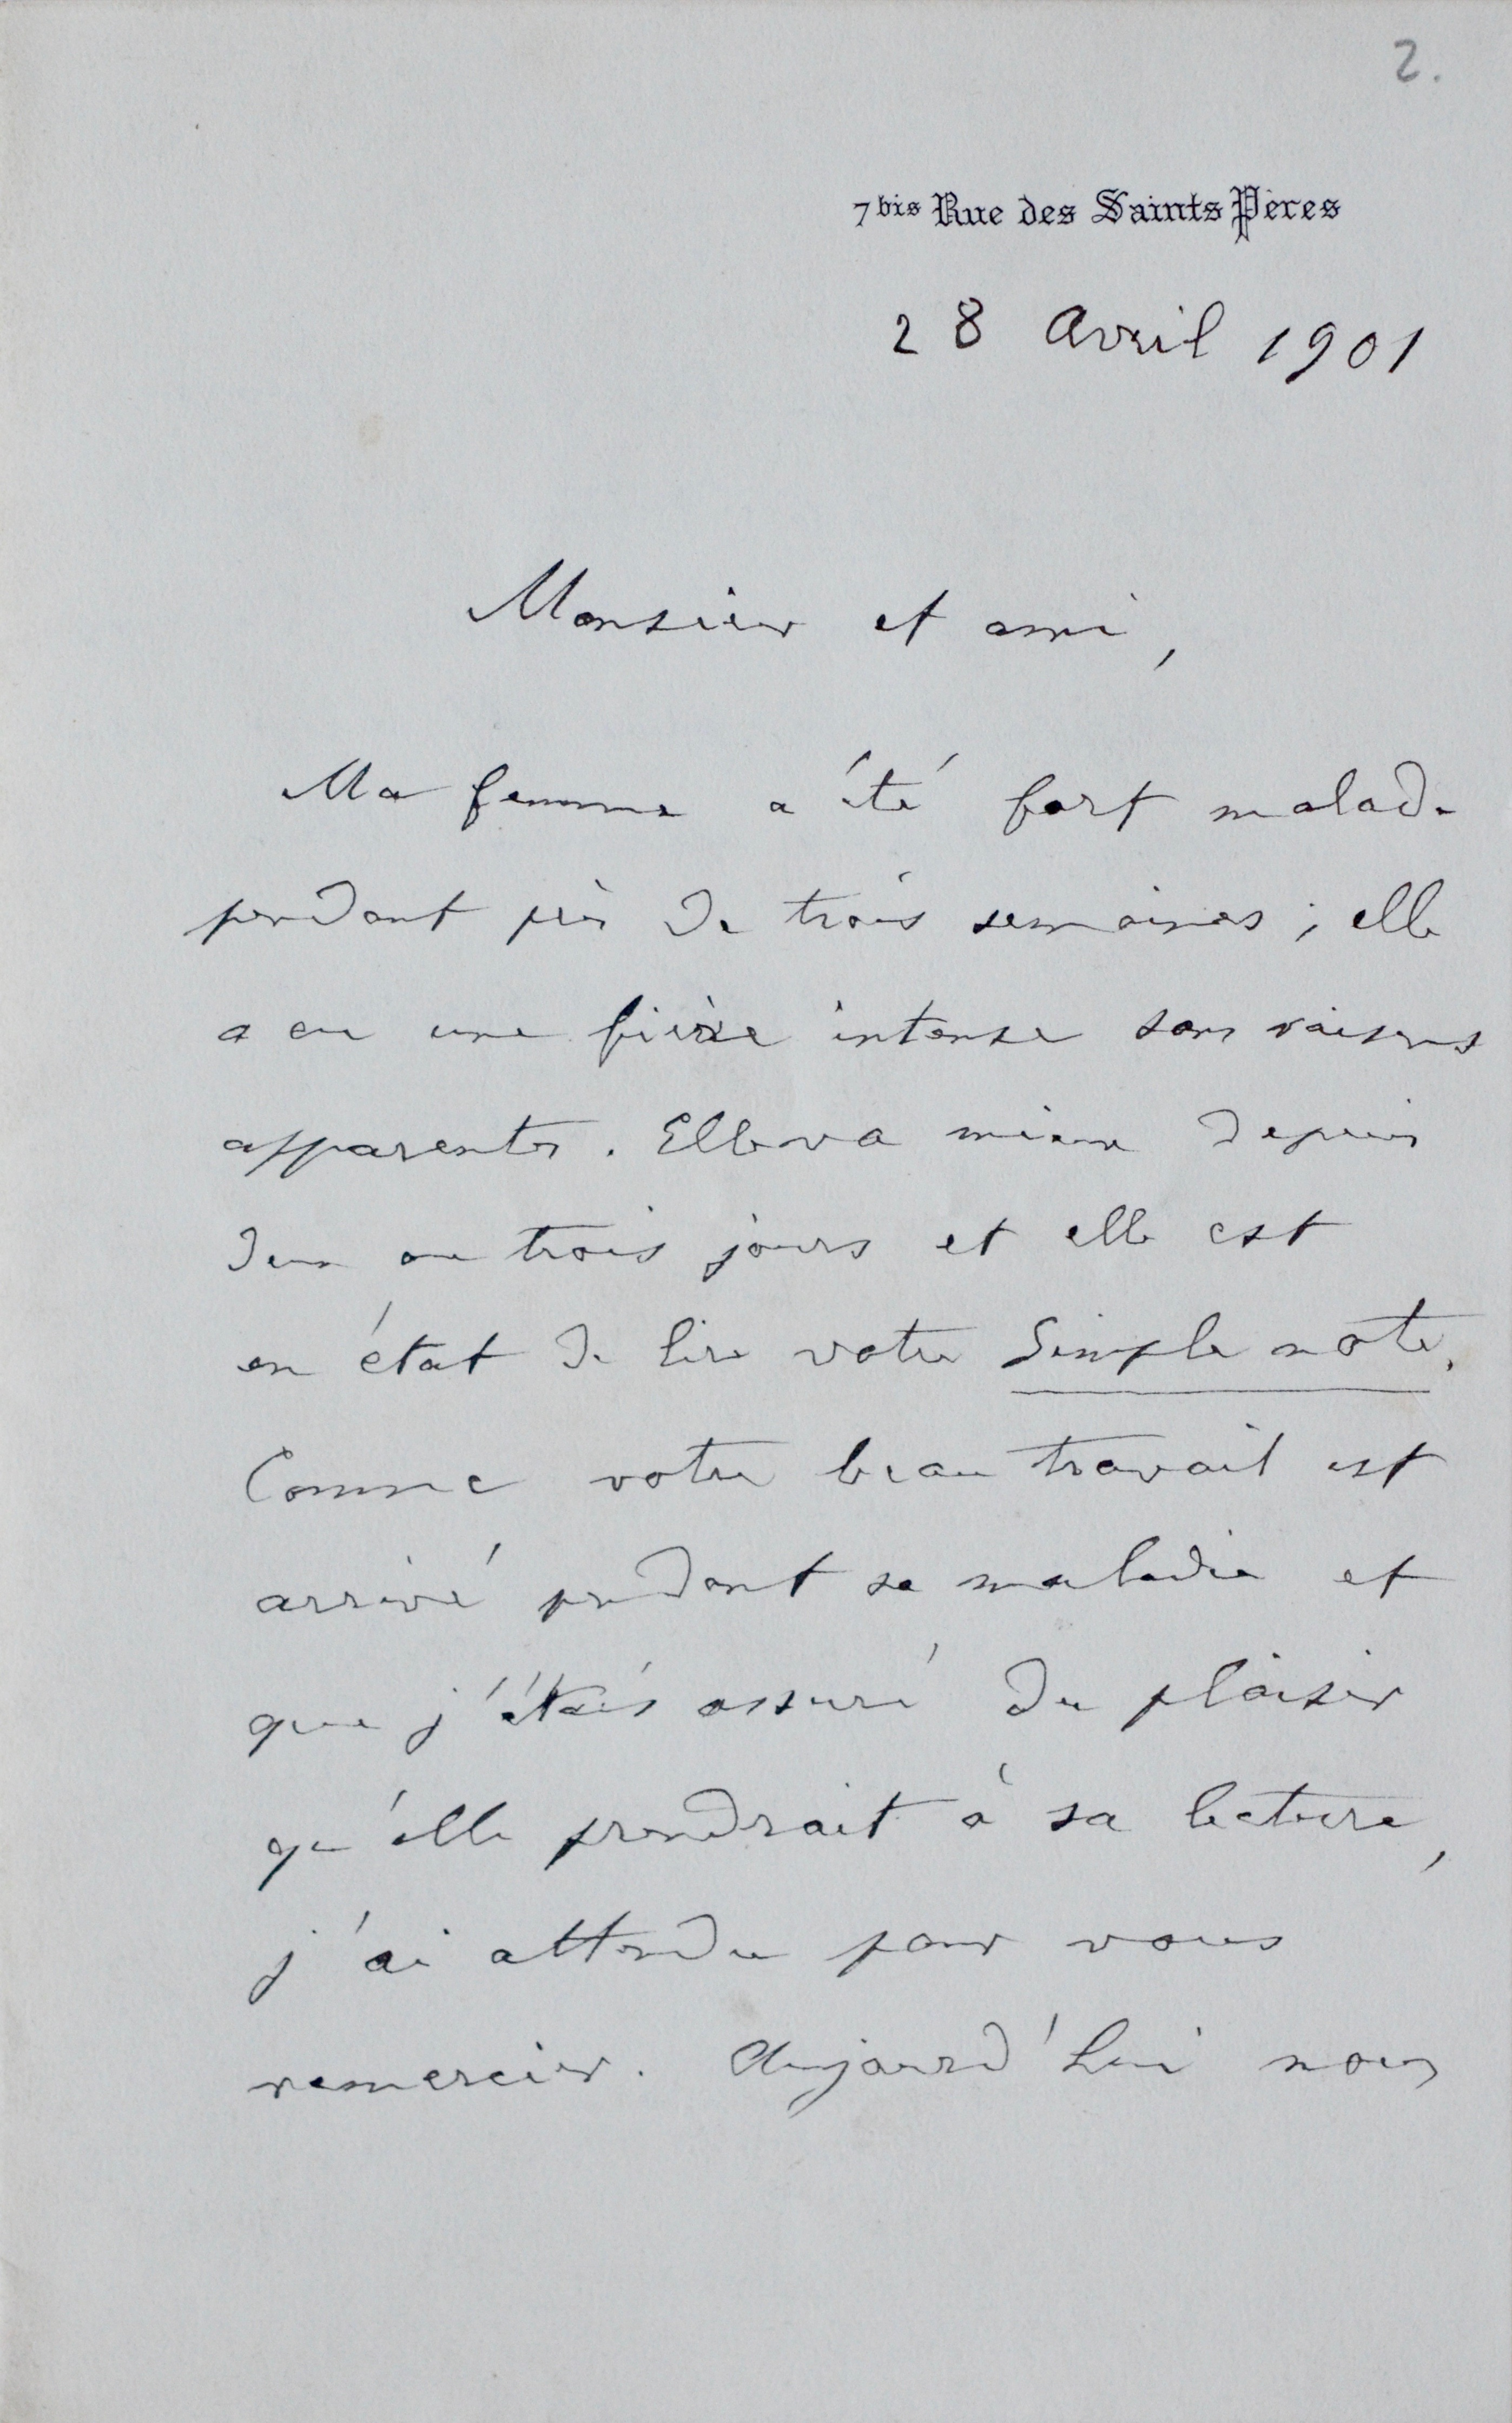 2.
7 bis Rue des Saints Pères
28 Avril 1901
Monsieur et ami,
Ma femme a été fort malade
pendant près de trois semaines ; elle
a eu une fièvre intense sans raisons
apparentes. Elle va mieux depuis
deux ou trois jours et elle est
en état de lire votre Simple note.
Comme votre beau travail est
arrivé pendant sa maladie et
que j'étais assuré du plaisir
qu'elle prendrait à sa lecture,
j'ai attendu pour vous
remercier. Aujourd'hui nous